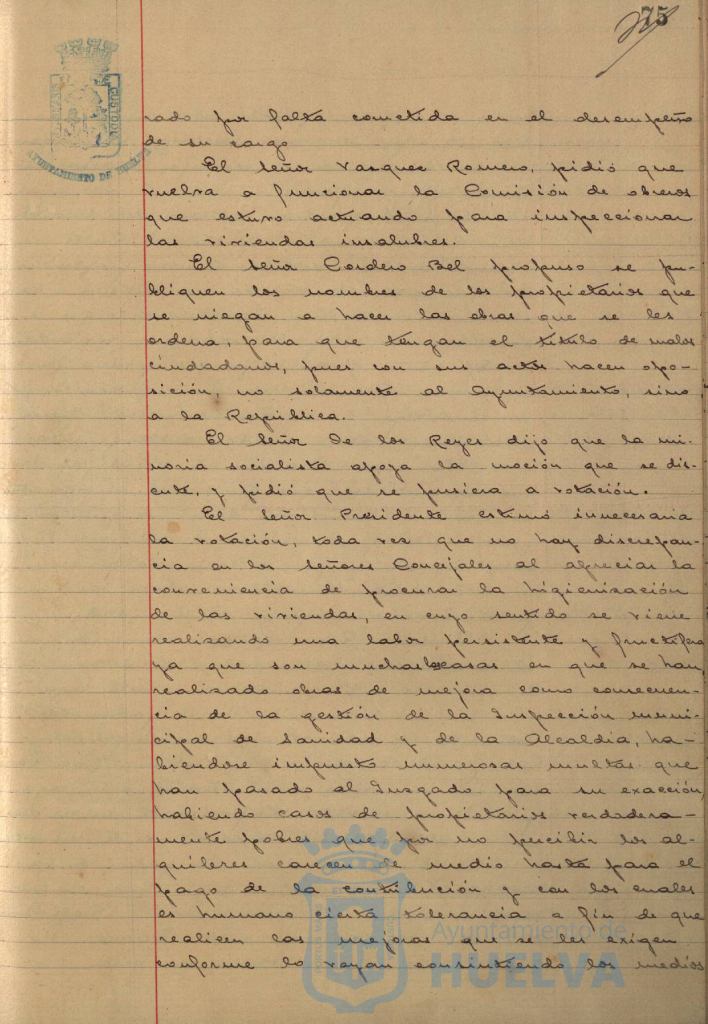 75
CUSTODI
AYUNTAMIENTO DE HUELVA
rado por falta cometida en el desempeño
de su cargo
El Señor Vazquez Romero, pidió que
vuelva a funcionar la Comisión de obreros
que estuvo actuando para inspeccionar
las viviendas insalubres.
El Señor Cordero Bel propuso se pu-
bliquen los nombres de los propietarios que
se niegan a hacer las obras que se les
ordena, para que tengan el título de malos
ciudadanos, pues con sus actos hacen opo-
sición, no solamente al Ayuntamiento, sino
a la República.
El Señor De los Reyes dijo que la mi-
noria socialista apoya la moción que se dis-
cute, y pidió que se pusiera a votación.
El Señor Presidente estimó innecesaria
la votación, toda vez que no hay discrepan-
cia en los Señores Concejales al apreciar la
conveniencia de procurar la higienización
de las viviendas, en cuyo sentido se viene
realizando una labor persistente y fructifera
ya que son muchas las casas en que se han
realizado obras de mejora como consecuen-
cia de la gestión de la Inspección muni-
cipal de Sanidad y de la Alcaldia, ha-
biendose impuesto numerosas multas que
han pasado al Juzgado para su exacción,
habiendo casos de propietarios verdadera-
mente pobres que por no percibir los al-
quileres carecen de medio hasta para el
pago de la contribución y con los cuales
es humano cierta tolerancia a fin de que
realicen las mejoras que se les exigen
conforme lo vayan consintiendo los medios
Ayuntamiento de
HUELVA